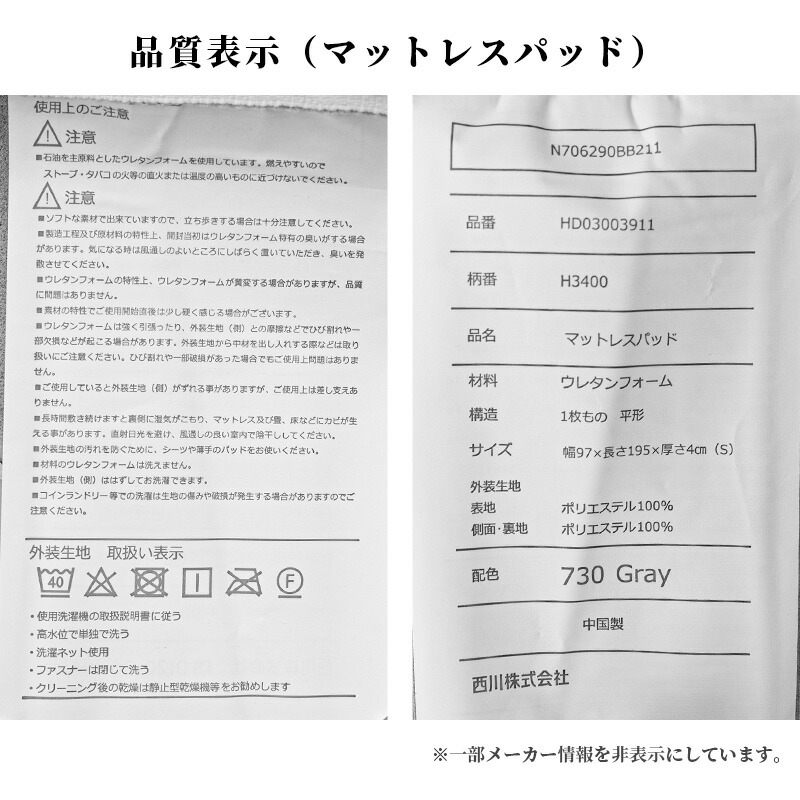 品質表示（マットレスパッド）
使用上のご注意
注意
■石油を主原料としたウレタンフォームを使用しています。燃えやすいので
ストーブ・タバコの火等の直火または温度の高いものに近づけないでください。
注意
■ソフトな素材で出来ていますので、立ち歩きする場合は十分注意してください。
■製造工程及び原材料の特性上、開封当初はウレタンフォーム特有の臭いがする場合
があります。気になる時は風通しのよいところにしばらく置いていただき、臭いを発
散させてください。
■ウレタンフォームの特性上、ウレタンフォームが黄変する場合がありますが、品質
に問題はありません。
■素材の特性でご使用開始直後は少し硬く感じる場合がございます。
■ウレタンフォームは強く引張ったり、外装生地（側）との摩擦などでひび割れや一
部欠損などが起こる場合があります。外装生地から中材を出し入れする際などは取り
扱いにご注意ください。ひび割れや一部破損があった場合でもご使用上問題はありま
せん。
■ご使用していると外装生地（側）がずれる事がありますが、ご使用上は差し支えあ
りません。
■長時間敷き続けますと裏側に湿気がこもり、マットレス及び畳、床などにカビが生
える事があります。直射日光を避け、風通しの良い室内で陰干ししてください。
■外装生地の汚れを防ぐために、シーツや薄手のパッドをお使いください。
■材料のウレタンフォームは洗えません。
■外装生地（側）ははずしてお洗濯できます。
■コインランドリー等での洗濯は生地の傷みや破損が発生する場合がありますのでご
注意ください。
外装生地 取扱い表示
40 F
・使用洗濯機の取扱説明書に従う
・高水位で単独で洗う
・洗濯ネット使用
・ファスナーは閉じて洗う
・クリーニング後の乾燥は静止型乾燥機等をお勧めします
N706290BB211
品番 HD03003911
柄番 H3400
品名 マットレスパッド
材料 ウレタンフォーム
構造 1枚もの 平形
サイズ 幅97×長さ195×厚さ4㎝（S）
外装生地
表地 ポリエステル100%
側面・裏地 ポリエステル100%
配色 730 Gray
中国製
西川株式会社
※一部メーカー情報を非表示にしています。